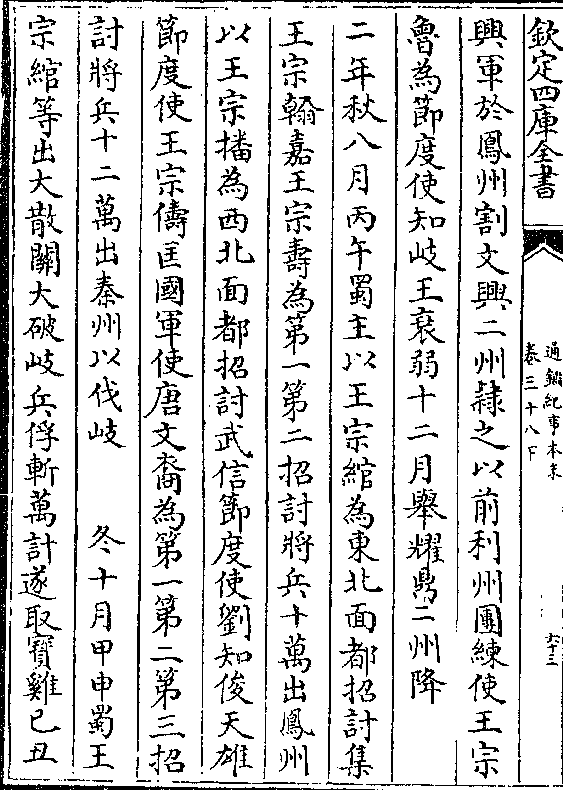 欽定四庫全書
通鑑紀事本末
卷三十八下
六十三
興軍於鳳州割文興二州隸之以前利州團練使王宗
魯為節度使知岐王衰弱十二月舉耀鼎二州降
二年秋八月丙午蜀主以王宗綰為東北面都招討集
王宗翰嘉王宗壽為第一第二招討將兵十萬出鳳州
以王宗播為西北面都招討武信節度使劉知俊天雄
節度使王宗儔匡國軍使唐文裔為第一第二第三招
討將兵十二萬出秦州以伐岐　　冬十月甲申蜀王
宗綰等出大散關大破岐兵俘斬萬計遂取寶雞己丑